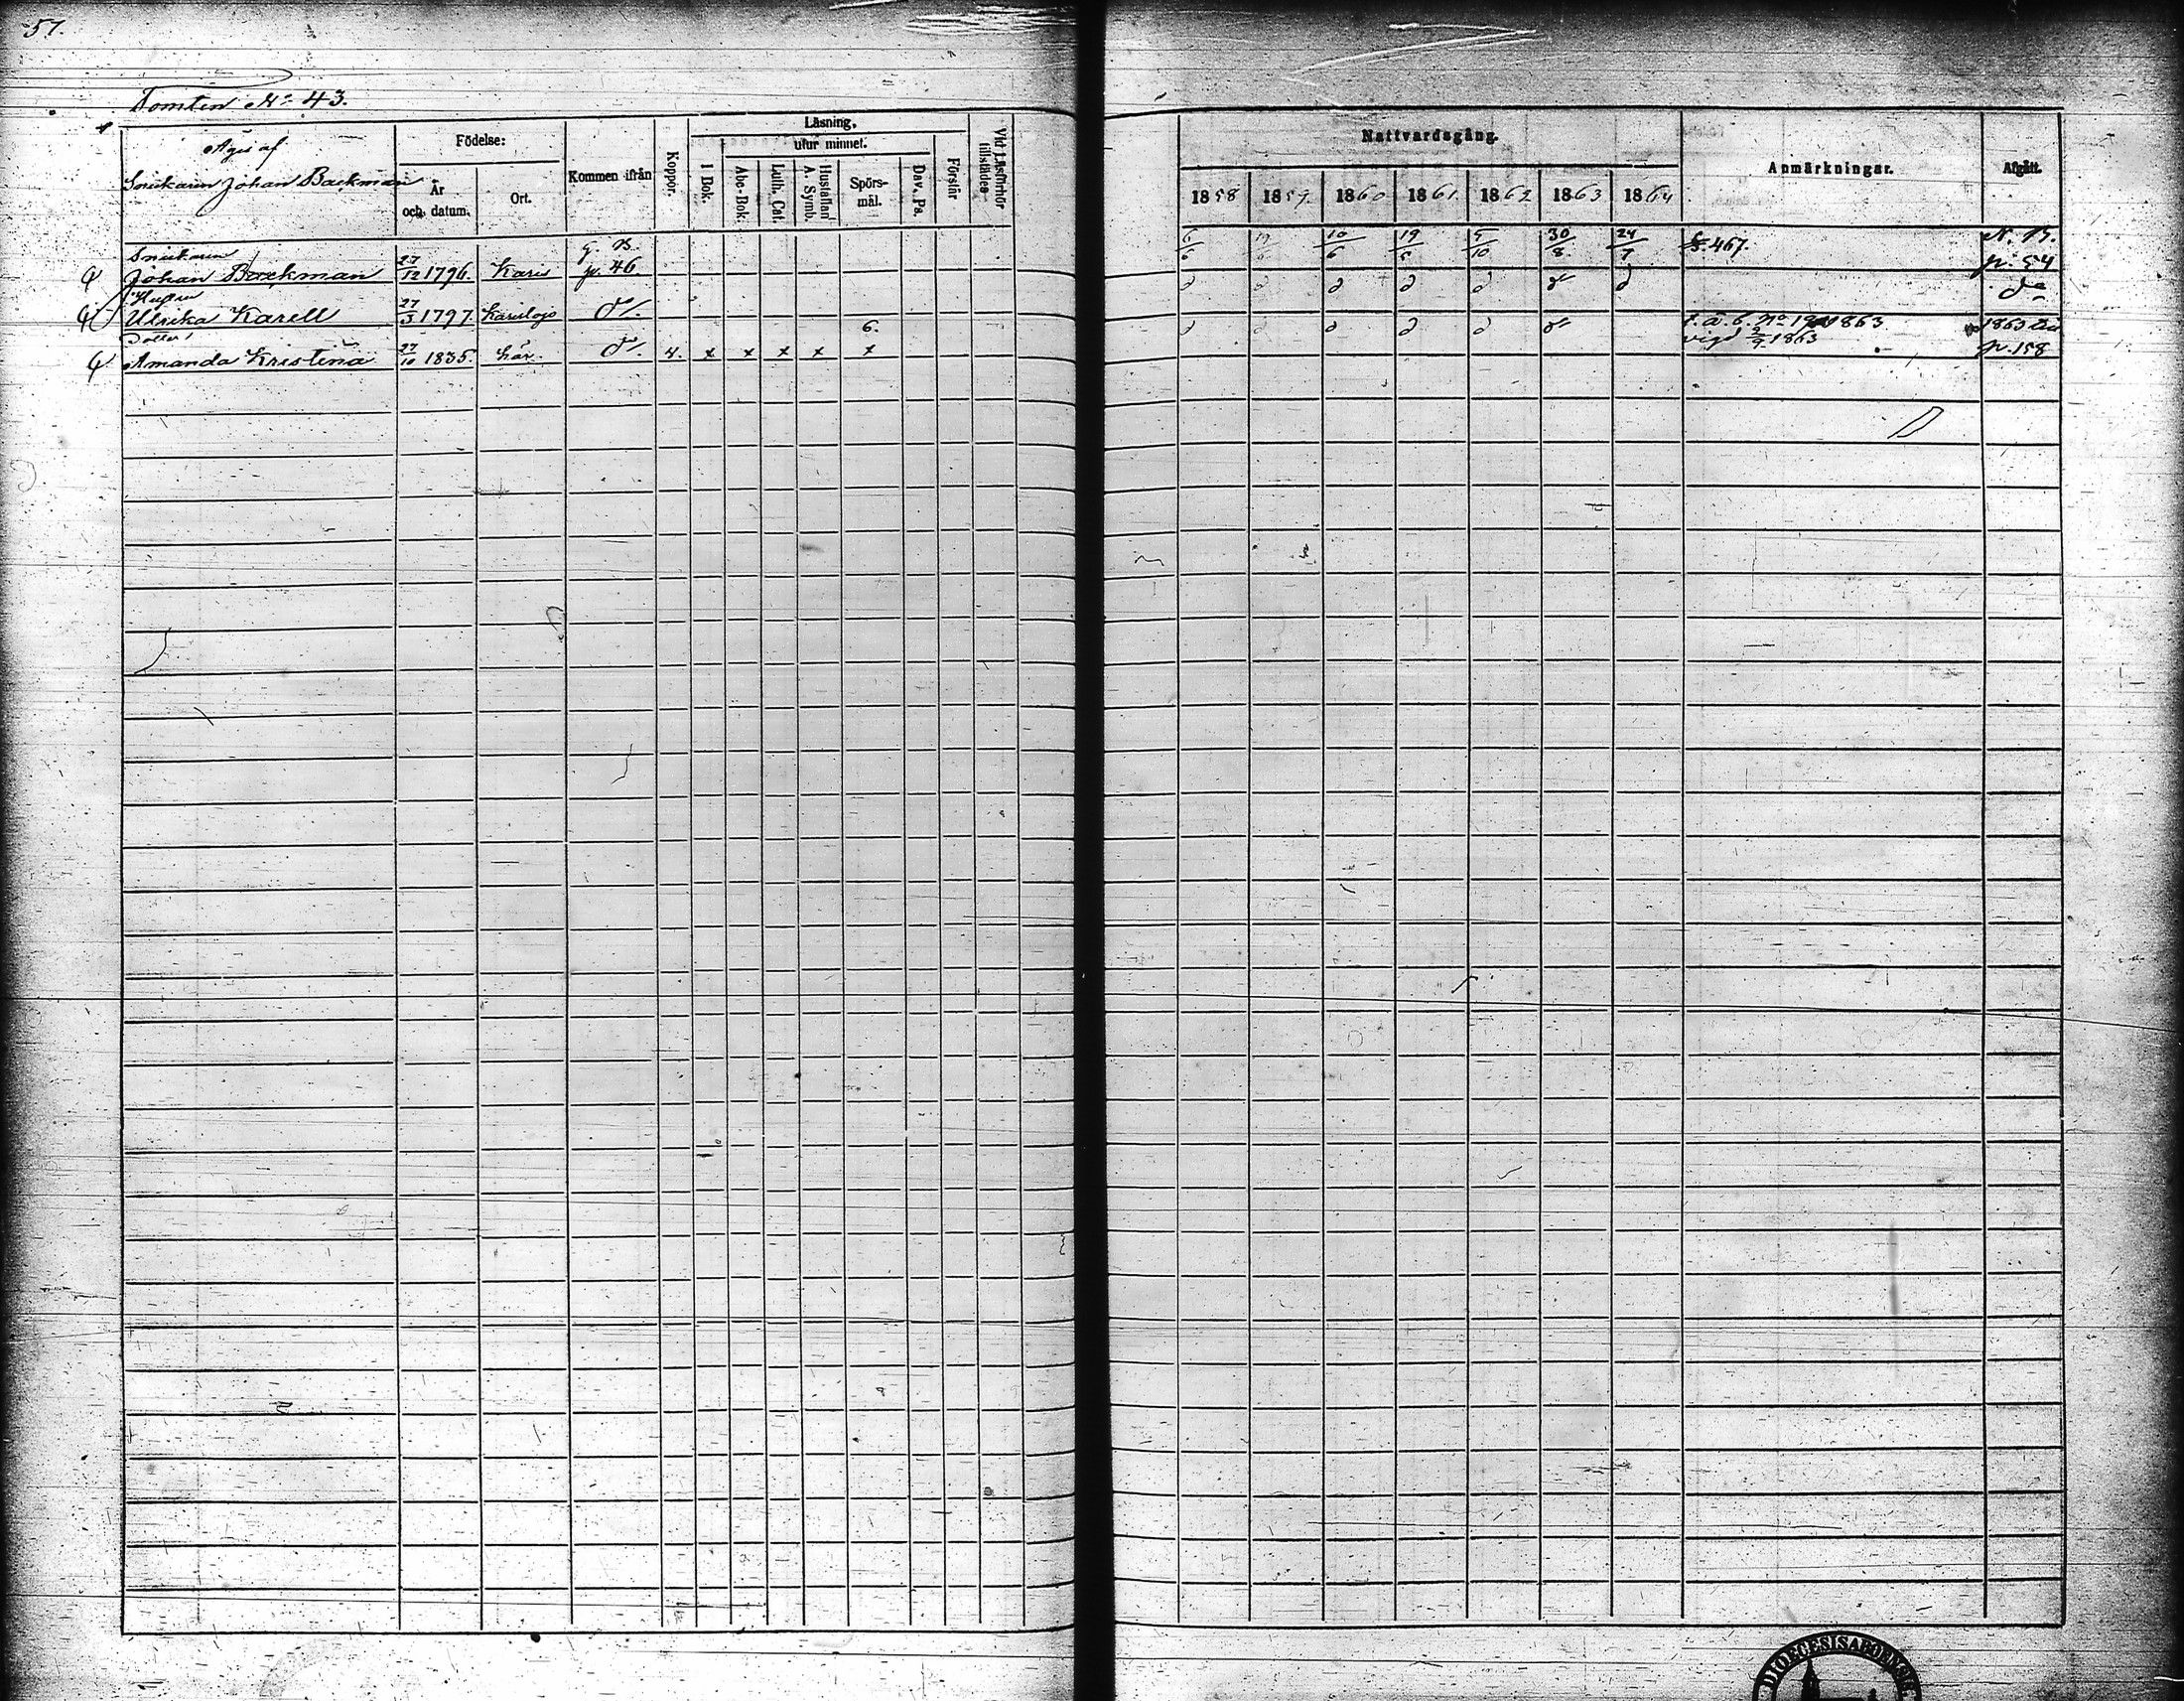 57.
Tomten No 43.
Äges af
Snickaren Johan Backman
Födelse:
År och datum.
Ort.
Kommen ifrån
Koppor.
Läsning,
I Bok.
utur minnet.
Abc-Bok.
Luth. Cat.
Hustaflan A. Symb.
Spörsmål.
Dav. Ps.
Förstår
Vid Läsförhör tillstädes
Nattvardsgång.
1858 1859. 1860 1861. 1862 1863 1864
Anmärkningar.
Afgått.
Snickaren G. B. 6/6 10/6 5/10 30/8 24/7 S. 467. N. B.
Johan Backman 27/12 1796. Karis p. 46 p. 54
Hustru
Ulrika Karell 27/3 1797. Karislojo do do
Dotter 6. 1863
Amanda Kristina 27/10 1835. här. do 4. x x x x x vigd 2/9 1863 p. 158
DIOECESIS ABOENSIS